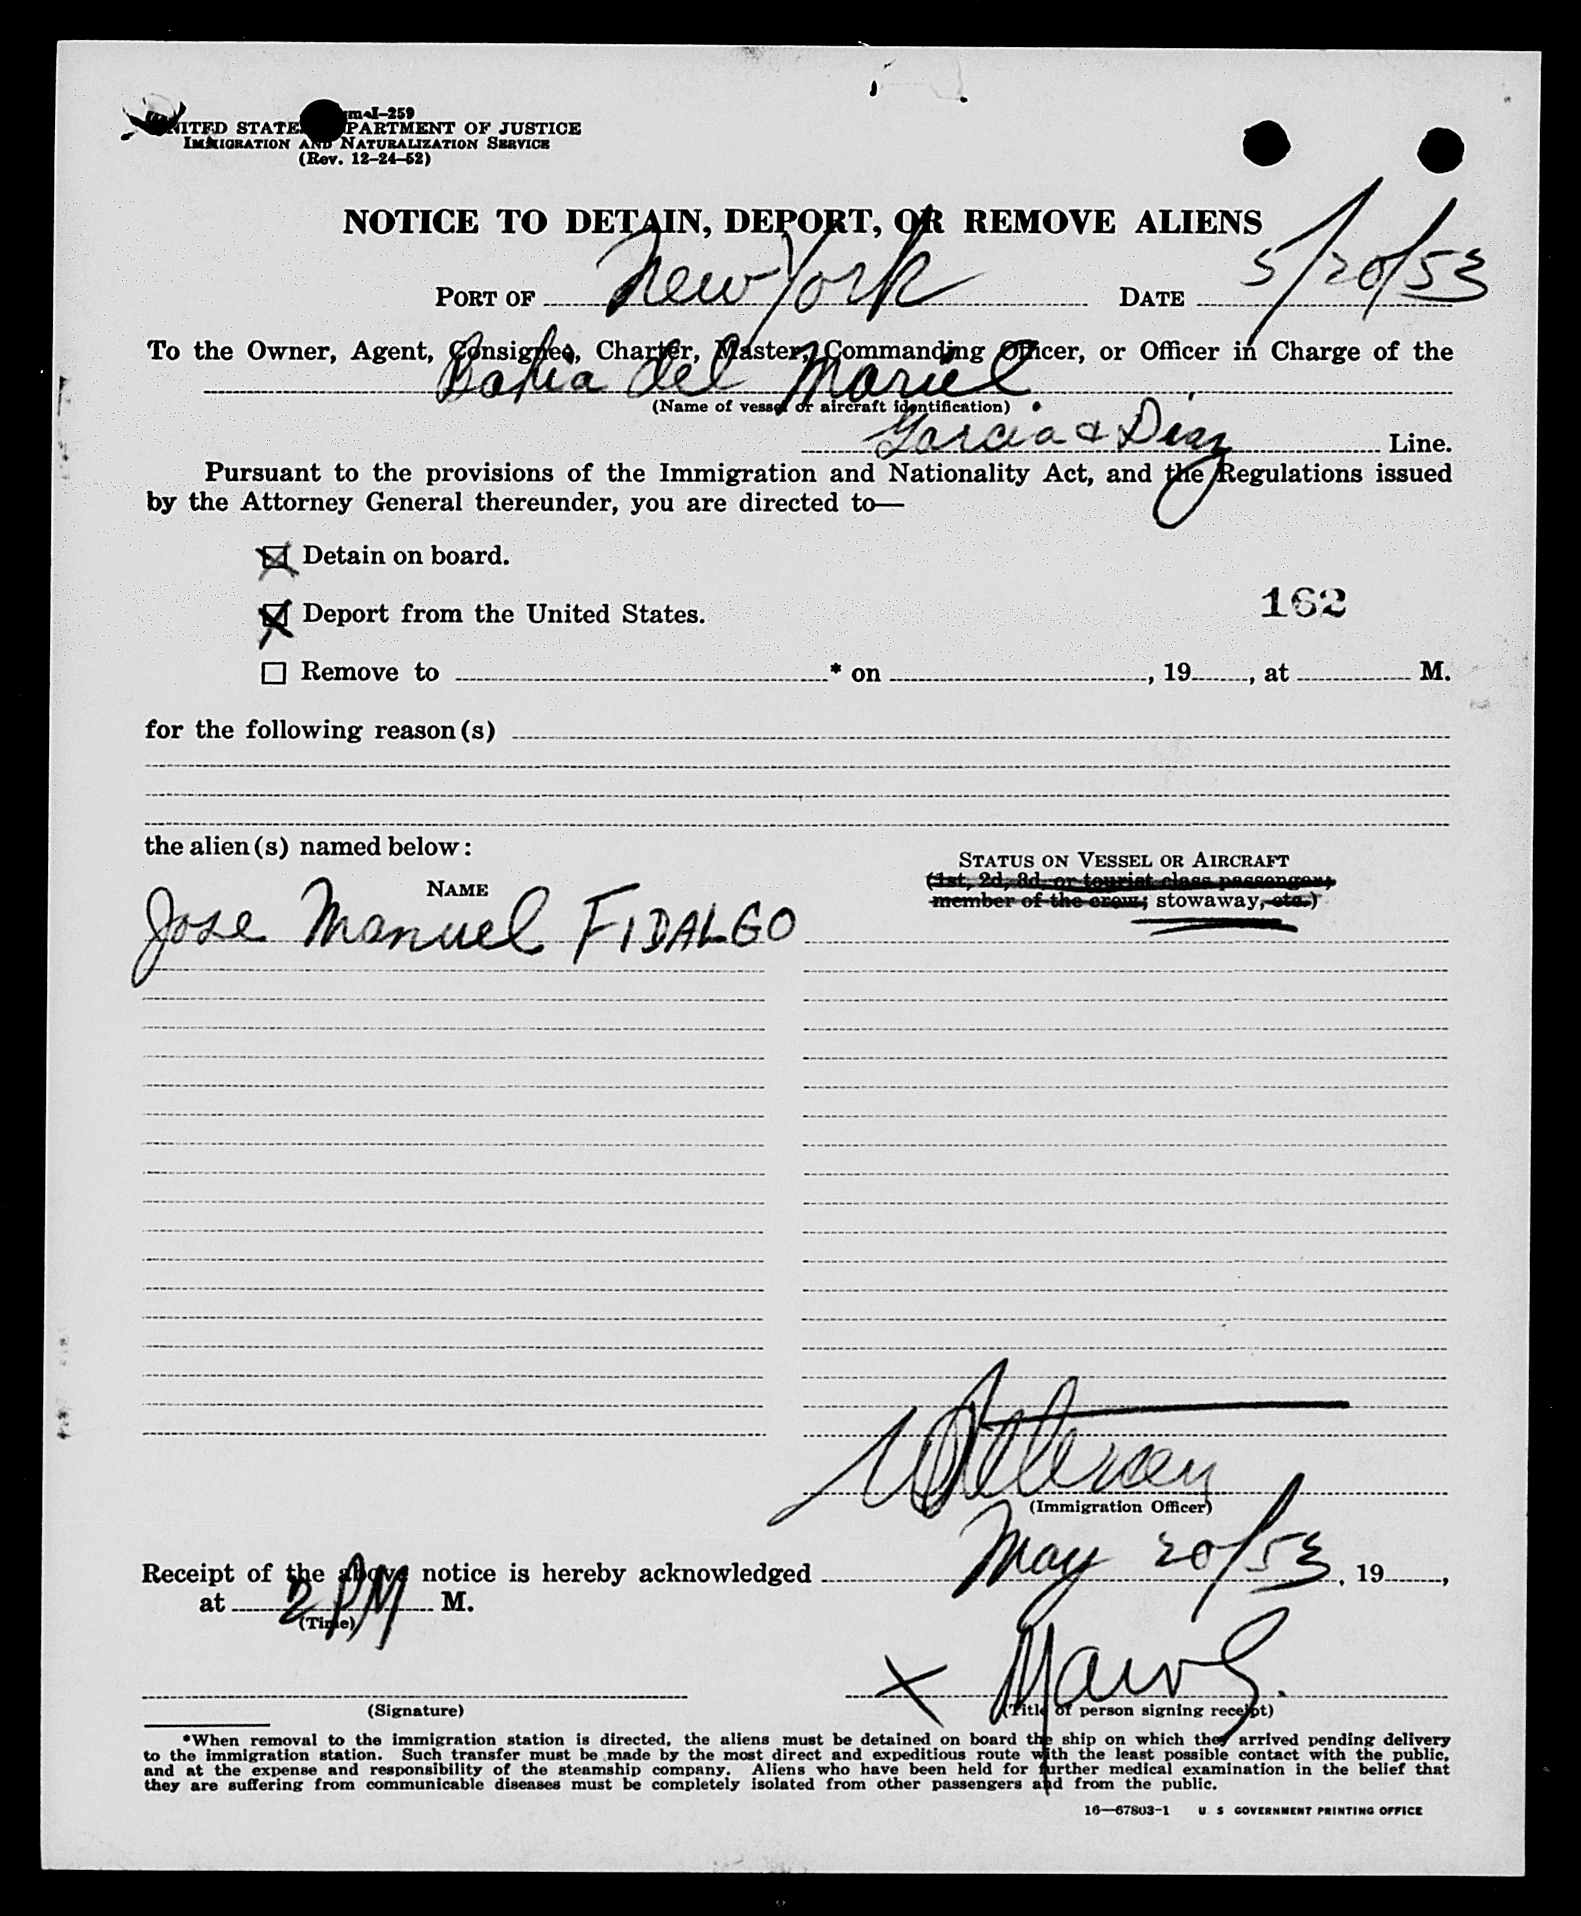 Form I-259
UNITED STATES DEPARTMENT OF JUSTICE
IMMIGRATION AND NATURALIZATION SERVICE
(Rev. 12-24-52)
NOTICE TO DETAIN, DEPORT, OR REMOVE ALIENS
PORT OF New York DATE 5/20/53
To the Owner, Agent, Consignee, Charter, Master, Commanding Officer, or Officer in Charge of the
Bahia del Mariel
(Name of vessel or aircraft identification)
Garcia & Diaz Line.
Pursuant to the provisions of the Immigration and Nationality Act, and the Regulations issued
by the Attorney General thereunder, you are directed to—
☒ Detain on board.
☒ Deport from the United States.
162
☐ Remove to * on , 19 , at M.
for the following reason(s)
the alien(s) named below:
STATUS ON VESSEL OR AIRCRAFT
(1st, 2d, 3d, or tourist class passenger;
member of the crew; stowaway, etc.)
NAME
Jose Manuel FIDALGO
(Immigration Officer)
Receipt of the above notice is hereby acknowledged May 20/53, 19 ,
at 2 PM M.
(Time)
X
(Signature) (Title of person signing receipt)
*When removal to the immigration station is directed, the aliens must be detained on board the ship on which they arrived pending delivery
to the immigration station. Such transfer must be made by the most direct and expeditious route with the least possible contact with the public,
and at the expense and responsibility of the steamship company. Aliens who have been held for further medical examination in the belief that
they are suffering from communicable diseases must be completely isolated from other passengers and from the public.
16—67803-1 U S GOVERNMENT PRINTING OFFICE